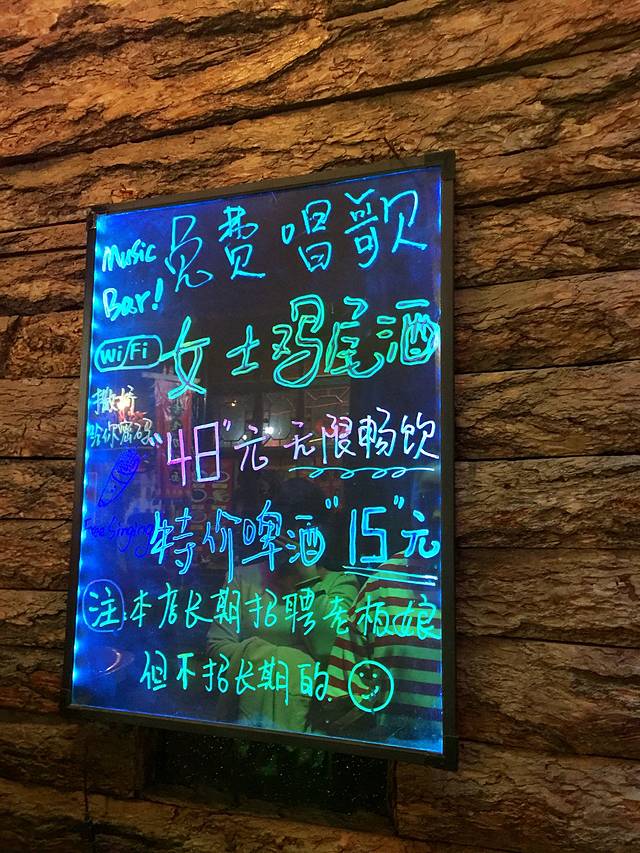 Music
Bar!
免费唱歌
Wi/Fi
女士鸡尾酒
撒娇
给你密码
"48"元 无限畅饮
Free Singing
特价啤酒"15"元
注:本店长期招聘老板娘
但不招长期的